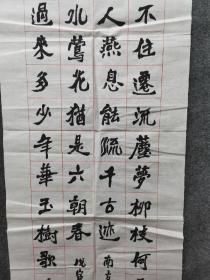 不住遷流塵夢柳枝何
人燕息能疏千古迹 南
水鶯花猶是六朝春
過來多少年華玉樹歌